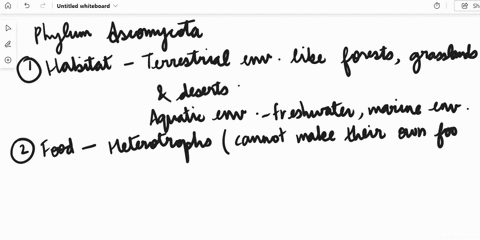 Untitled whiteboard
Phylum Ascomycota
① Habitat - Terrestrial env. like forests, grasslands
& deserts.
Aquatic env. - freshwater, marine env.
② Food - Heterotrophs (cannot make their own foo